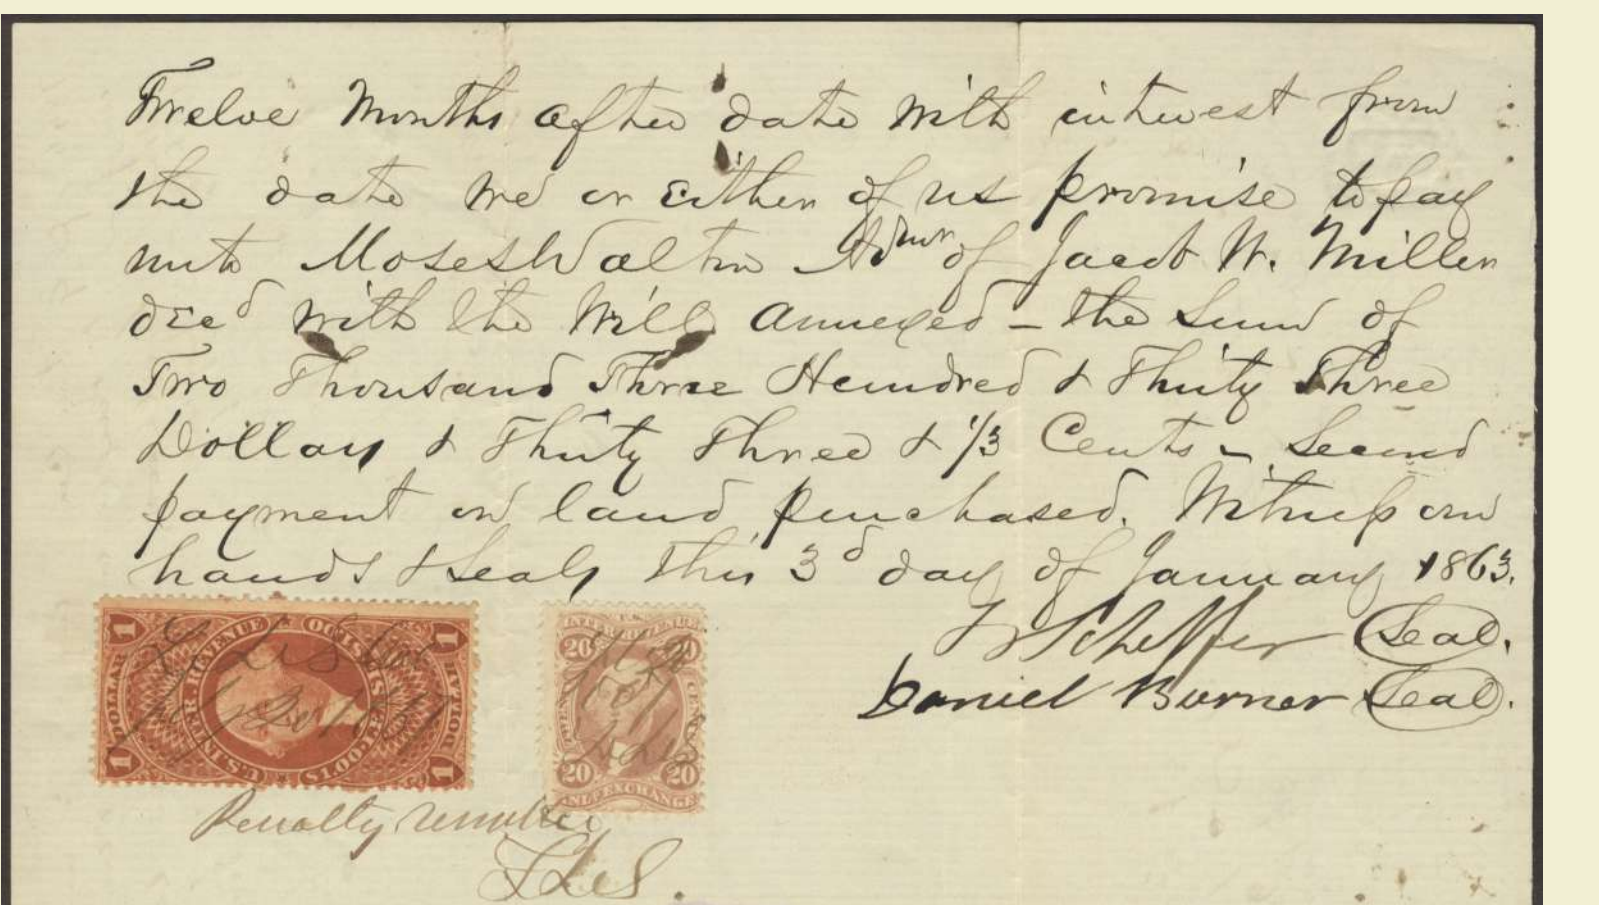 Twelve Months after date with interest from
the date we or Either of us promise to pay
unto Moses Walton Admr of Jacob W. Miller
decd with the Will annexed – the Sum of
Two Thousand Three Hundred & Thirty Three
Dollars & Thirty Three & 1/3 Cents – Second
payment on land purchased. Witness our
hands & Seals this 3d day of January 1863.
Scheffer Seal.
Daniel Burner Seal.
U.S. INTER. REVENUE
1 DOLLAR
1 DOLLAR
20 20
INLD EXCHANGE
20 20
Penalty remitted